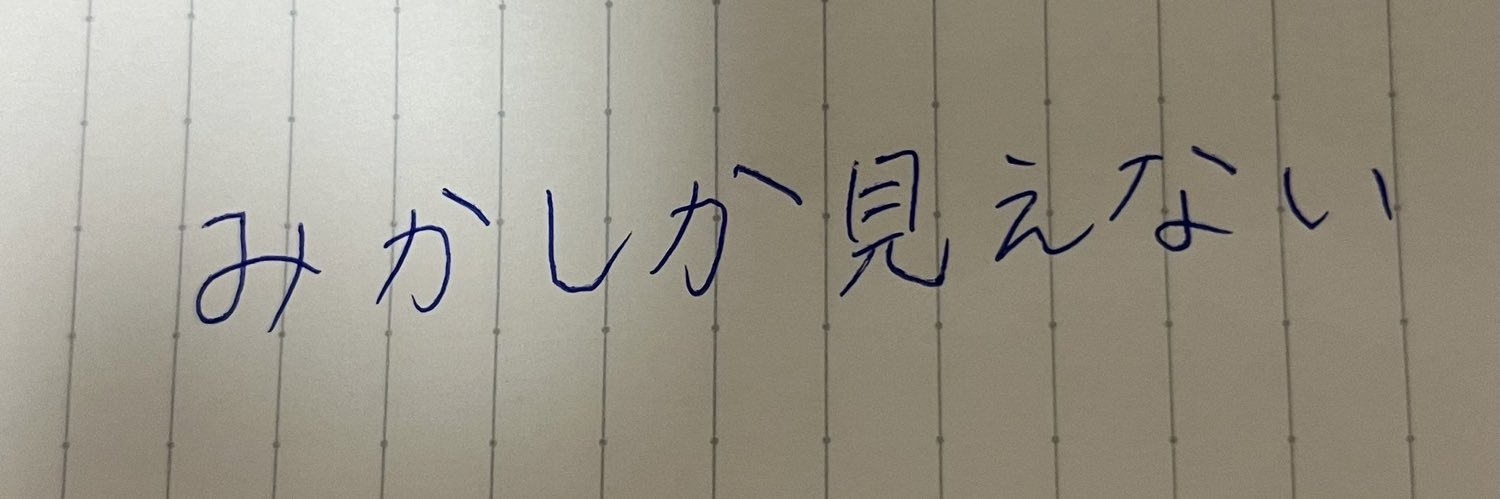 みかしか見えない